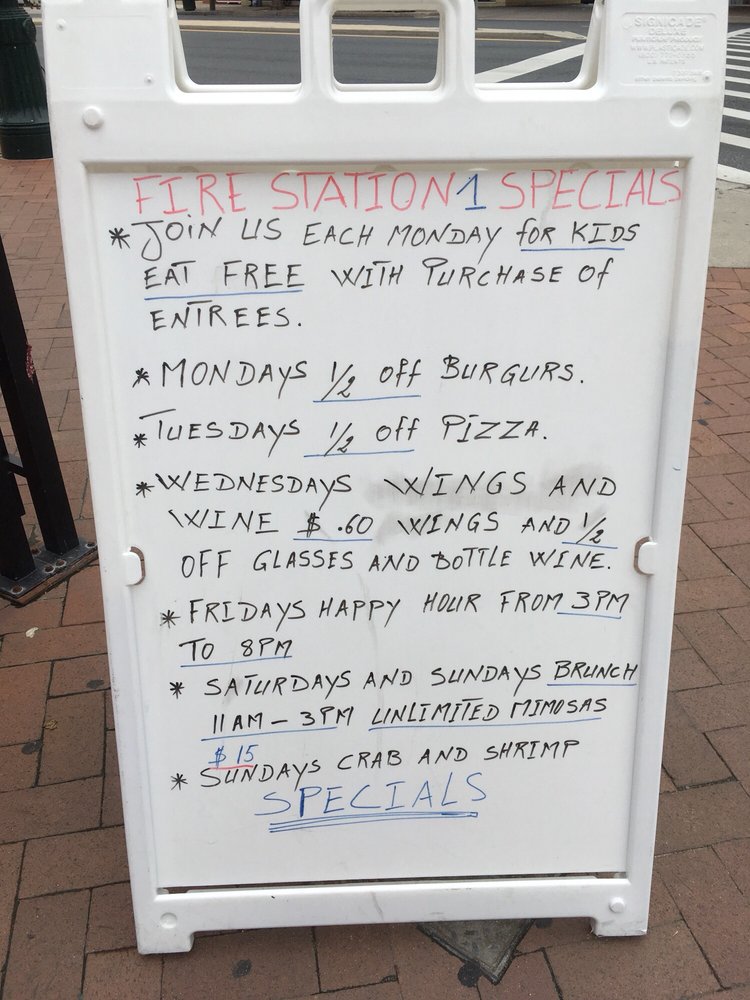 SIGNICADE
DELUXE
FIRE STATION 1 SPECIALS
* JOIN US EACH MONDAY for KIDS
EAT FREE WITH PURCHASE Of
ENTREES.
* MONDAYS 1/2 off BURGURS.
* TUESDAYS 1/2 off PIZZA.
* WEDNESDAYS WINGS AND
WINE $ .60 WINGS AND 1/2
OFF GLASSES AND BOTTLE WINE.
* FRIDAYS HAPPY HOUR FROM 3PM
TO 8PM
* SATURDAYS AND SUNDAYS BRUNCH
11AM - 3PM UNLIMITED MIMOSAS
$ 15
* SUNDAYS CRAB AND SHRIMP
SPECIALS